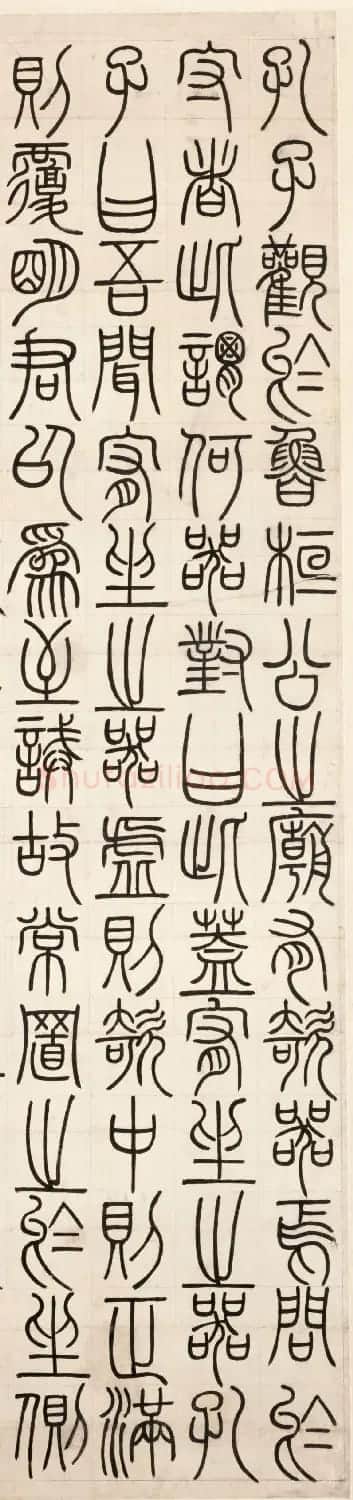 孔子觀於魯桓公之廟有欹器焉問於
守者此謂何器對曰此蓋宥坐之器孔
子曰吾聞宥坐之器虛則欹中則正滿
則覆明君以爲至誡故常置之於坐側